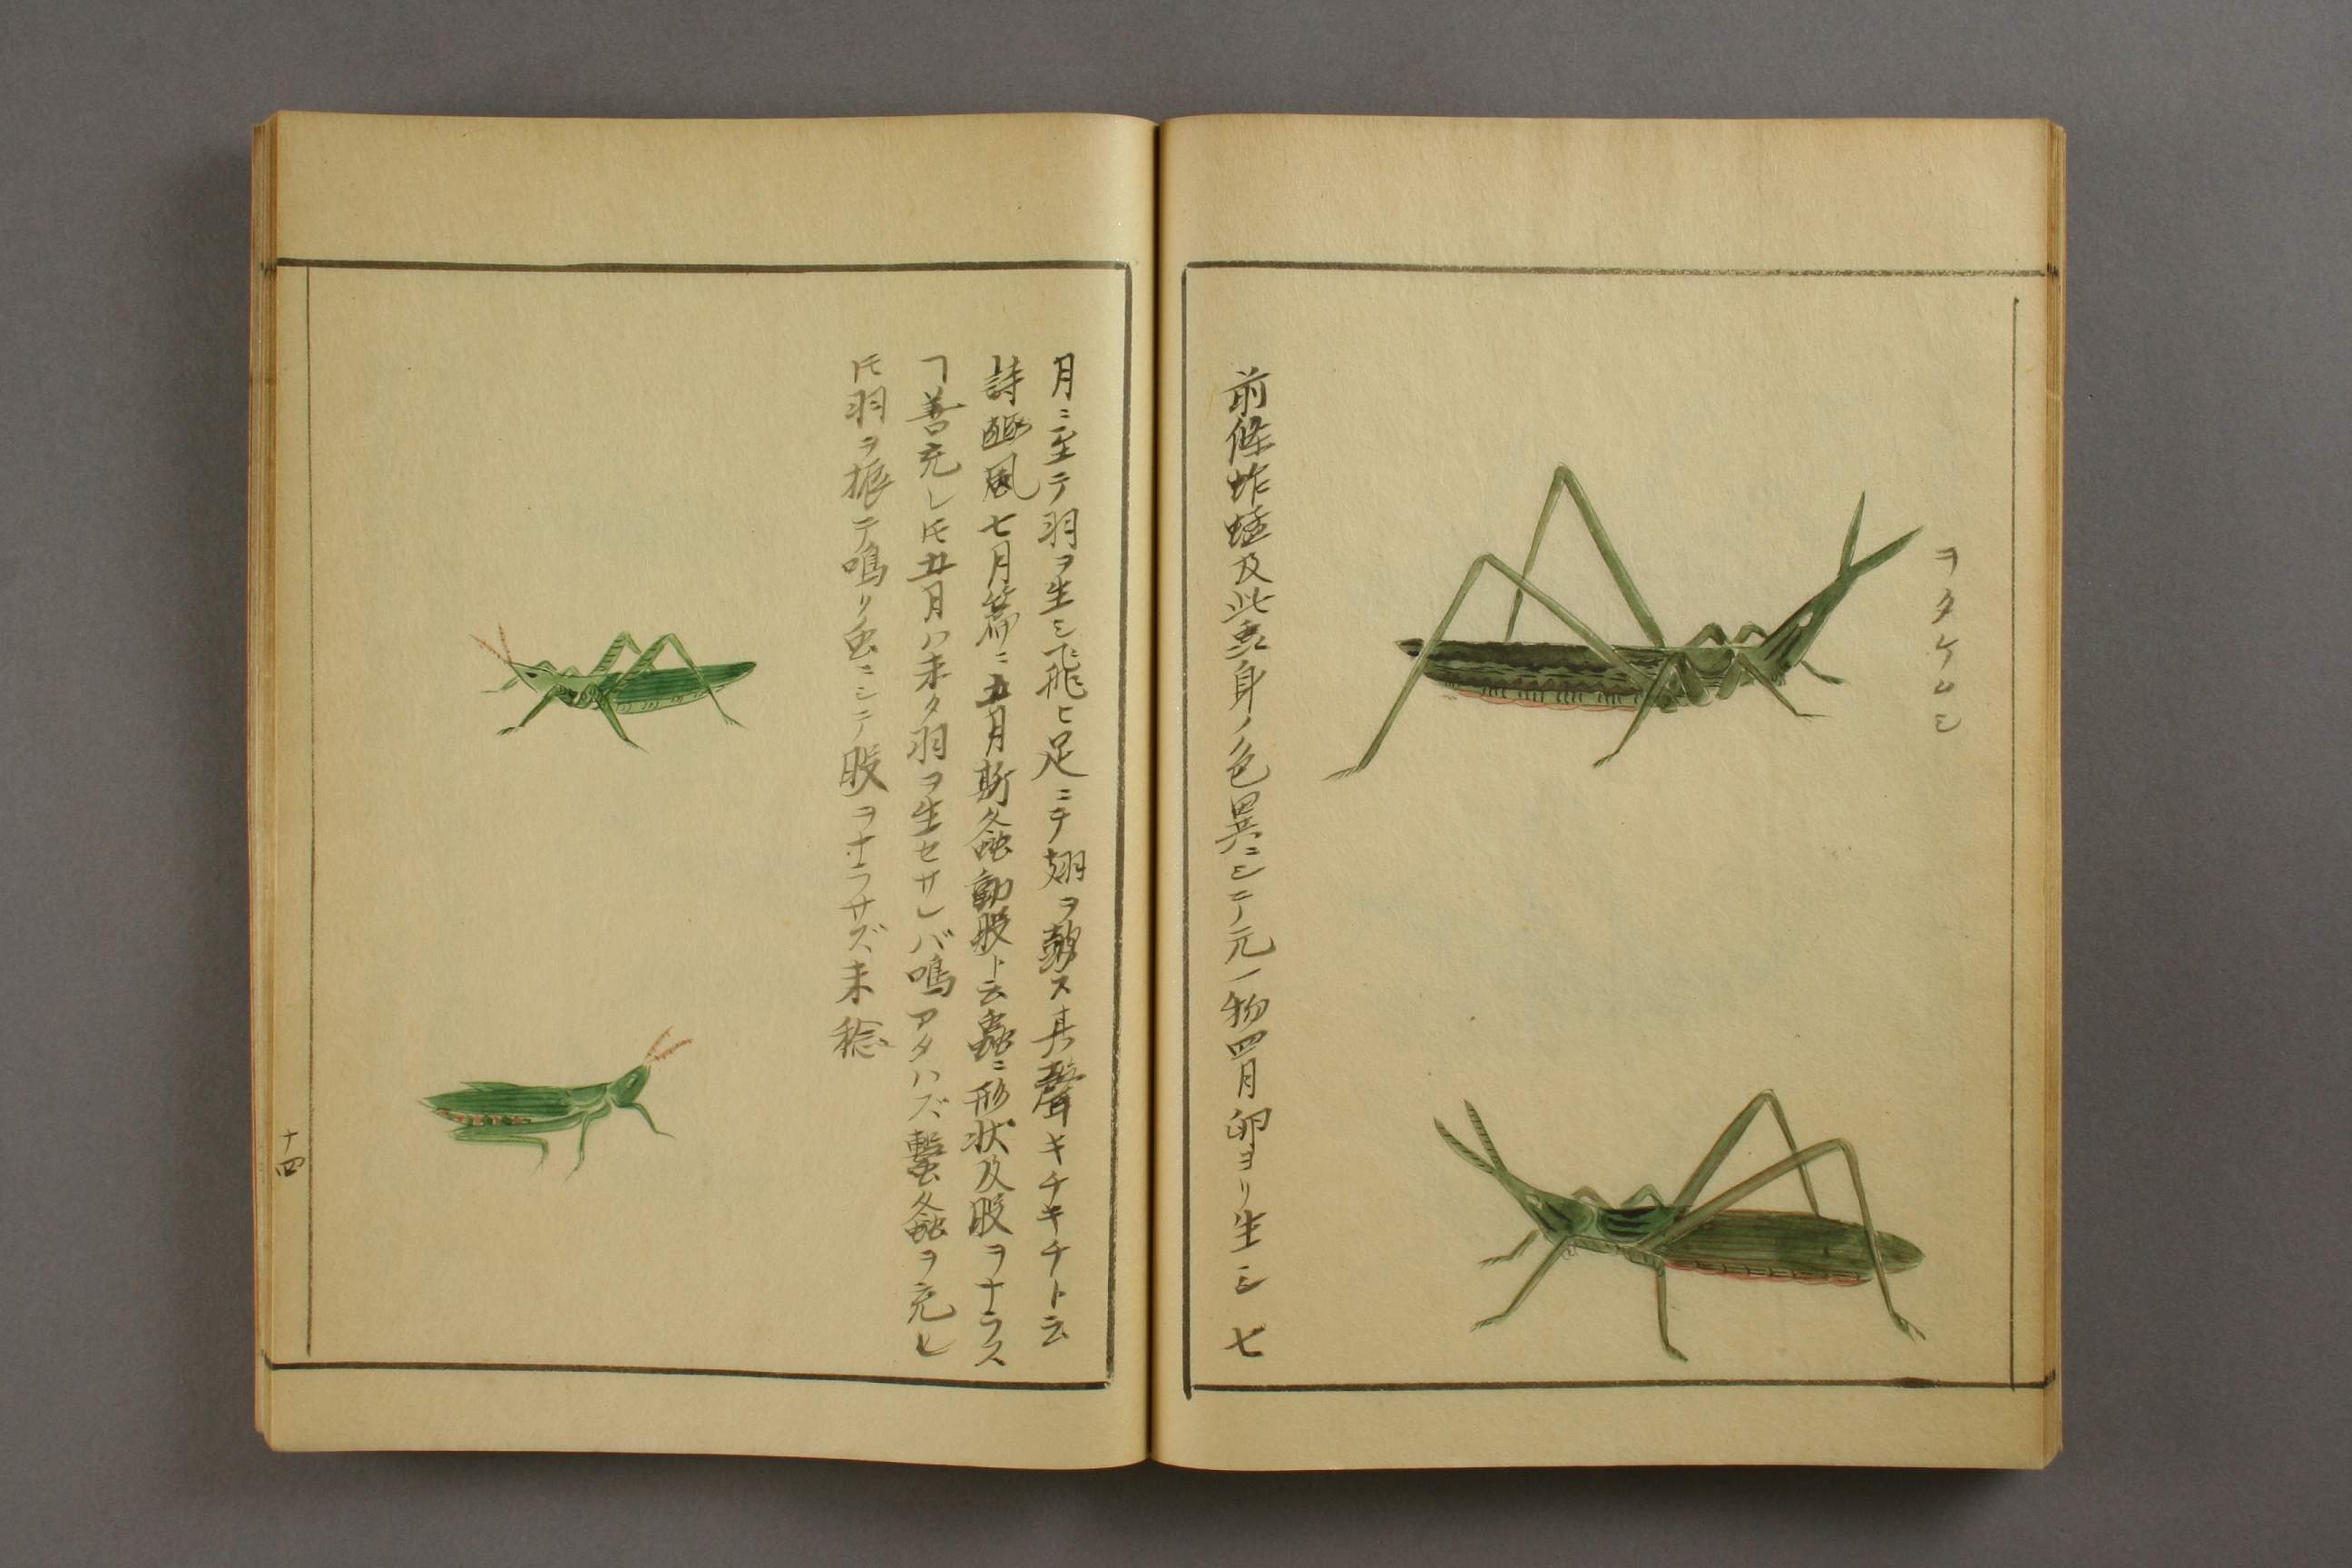 ヲタケムシ
前條蚱蜢及此虫身ノ色異ニシテ元一物四月卵ヨリ生シ七
月ニ至テ羽ヲ生シ飛ヒ足ニテ翅ヲ動ス其聲キチキチト云
詩豳風七月篇ニ五月斯螽動股ト云蟲ニ形状及股ヲナラス
ヿ善充レ𪜈五月ハ未タ羽ヲ生セサレバ鳴アタハズ螽ヲ充レ
𪜈羽ヲ振テ鳴リ虫ニシテ股ヲナラサズ未稔
十四